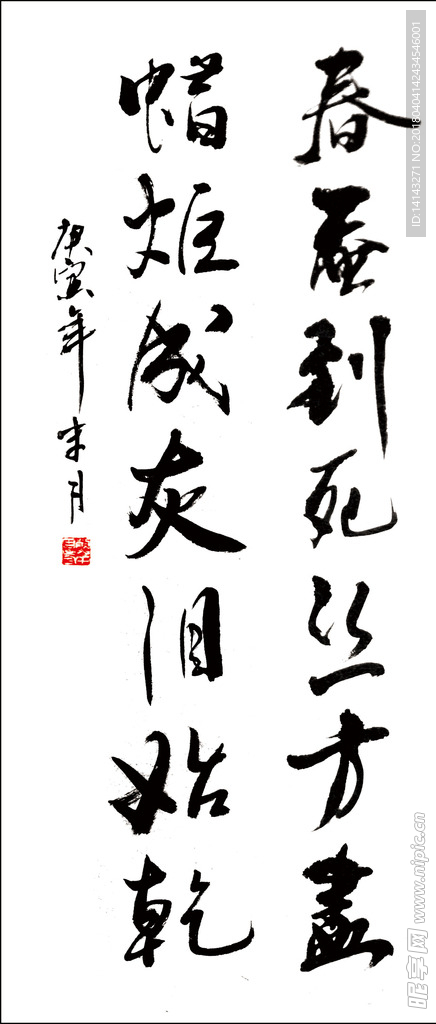 春蚕到死丝方盡
蜡炬成灰泪始乾
庚寅年未月
ID:14143271 NO:20180404142434546001
昵享网 www.nipic.cn